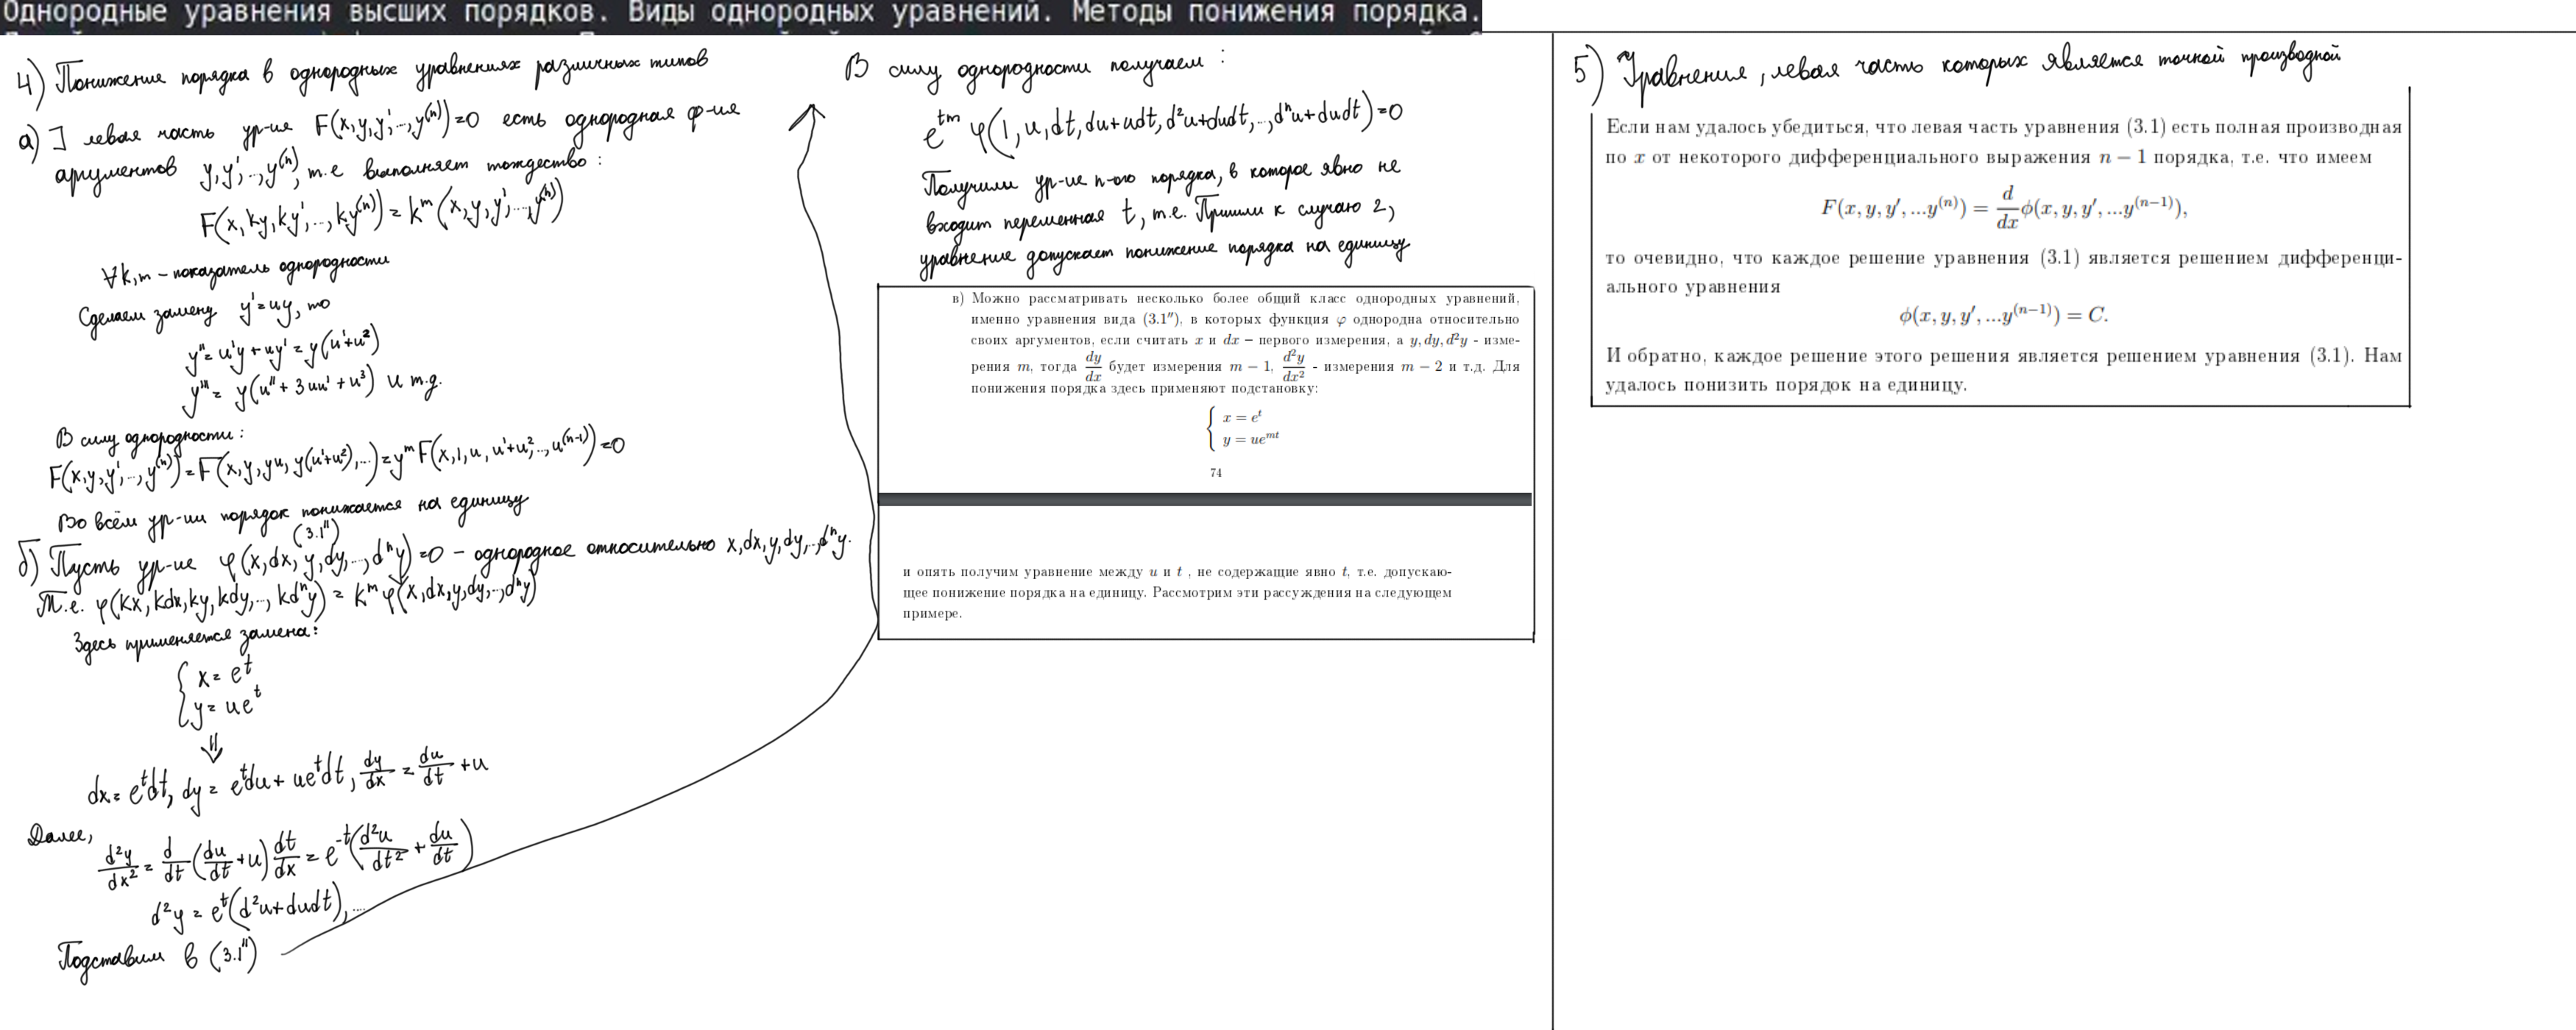 Однородные уравнения высших порядков. Виды однородных уравнений. Методы понижения порядка.
4) Понижение порядка в однородных уравнениях различных типов
а) ] левая часть ур-ие F(x,y,y',..,y⁽ⁿ⁾)=0 есть однородная ф-ия
аргументов y,y',..,y⁽ⁿ⁾, т.е выполняет тождество:
F(x,ky,ky',..,ky⁽ⁿ⁾) = kᵐ(x,y,y',..,y⁽ⁿ⁾)
∀k,m – показатель однородности
Сделаем замену y'=uy, то
y''= u'y + uy' = y(u'+u²)
y'''= y(u''+ 3uu' + u³) и т.д.
В силу однородности:
F(x,y,y',..,y⁽ⁿ⁾) = F(x,y,yu,y(u'+u²),...) = yᵐF(x,1,u,u'+u²,..,u⁽ⁿ⁻¹⁾)=0
Во всём ур-ии порядок понижается на единицу
(3.1'')
б) Пусть ур-ие φ(x,dx,y,dy,..,dⁿy)=0 – однородное относительно x,dx,y,dy,..,dⁿy.
Т.е. φ(kx,kdx,ky,kdy,..,kdⁿy) = kᵐφ(x,dx,y,dy,..,dⁿy)
Здесь применяется замена:
{ x= eᵗ
y= ueᵗ
⇓
dx= eᵗdt, dy= eᵗdu+ ueᵗdt, dy/dx = du/dt + u
Далее,
d²y/dx² = d/dt (du/dt + u) dt/dx = e⁻ᵗ(d²u/dt² + du/dt)
d²y = eᵗ(d²u+dudt),...
Подставим в (3.1'')
В силу однородности получаем:
eᵗᵐ φ(1,u,dt,du+udt,d²u+dudt,..,dⁿu+dudt)=0
Получили ур-ие n-ого порядка, в которое явно не
входит переменная t, т.е. Пришли к случаю 2,
уравнение допускает понижение порядка на единицу
в) Можно рассматривать несколько более общий класс однородных уравнений,
именно уравнения вида (3.1''), в которых функция φ однородна относительно
своих аргументов, если считать x и dx − первого измерения, а y, dy, d²y - изме-
рения m, тогда dy/dx будет измерения m − 1, d²y/dx² - измерения m − 2 и т.д. Для
понижения порядка здесь применяют подстановку:
{ x = eᵗ
y = ueᵐᵗ
74
и опять получим уравнение между u и t , не содержащие явно t, т.е. допускаю-
щее понижение порядка на единицу. Рассмотрим эти рассуждения на следующем
примере.
5) Уравнения, левая часть которых является точной производной
Если нам удалось убедиться, что левая часть уравнения (3.1) есть полная производная
по x от некоторого дифференциального выражения n − 1 порядка, т.е. что имеем
F(x, y, y′, ...y⁽ⁿ⁾) = d/dx ϕ(x, y, y′, ...y⁽ⁿ⁻¹⁾),
то очевидно, что каждое решение уравнения (3.1) является решением дифференци-
ального уравнения
ϕ(x, y, y′, ...y⁽ⁿ⁻¹⁾) = C.
И обратно, каждое решение этого решения является решением уравнения (3.1). Нам
удалось понизить порядок на единицу.